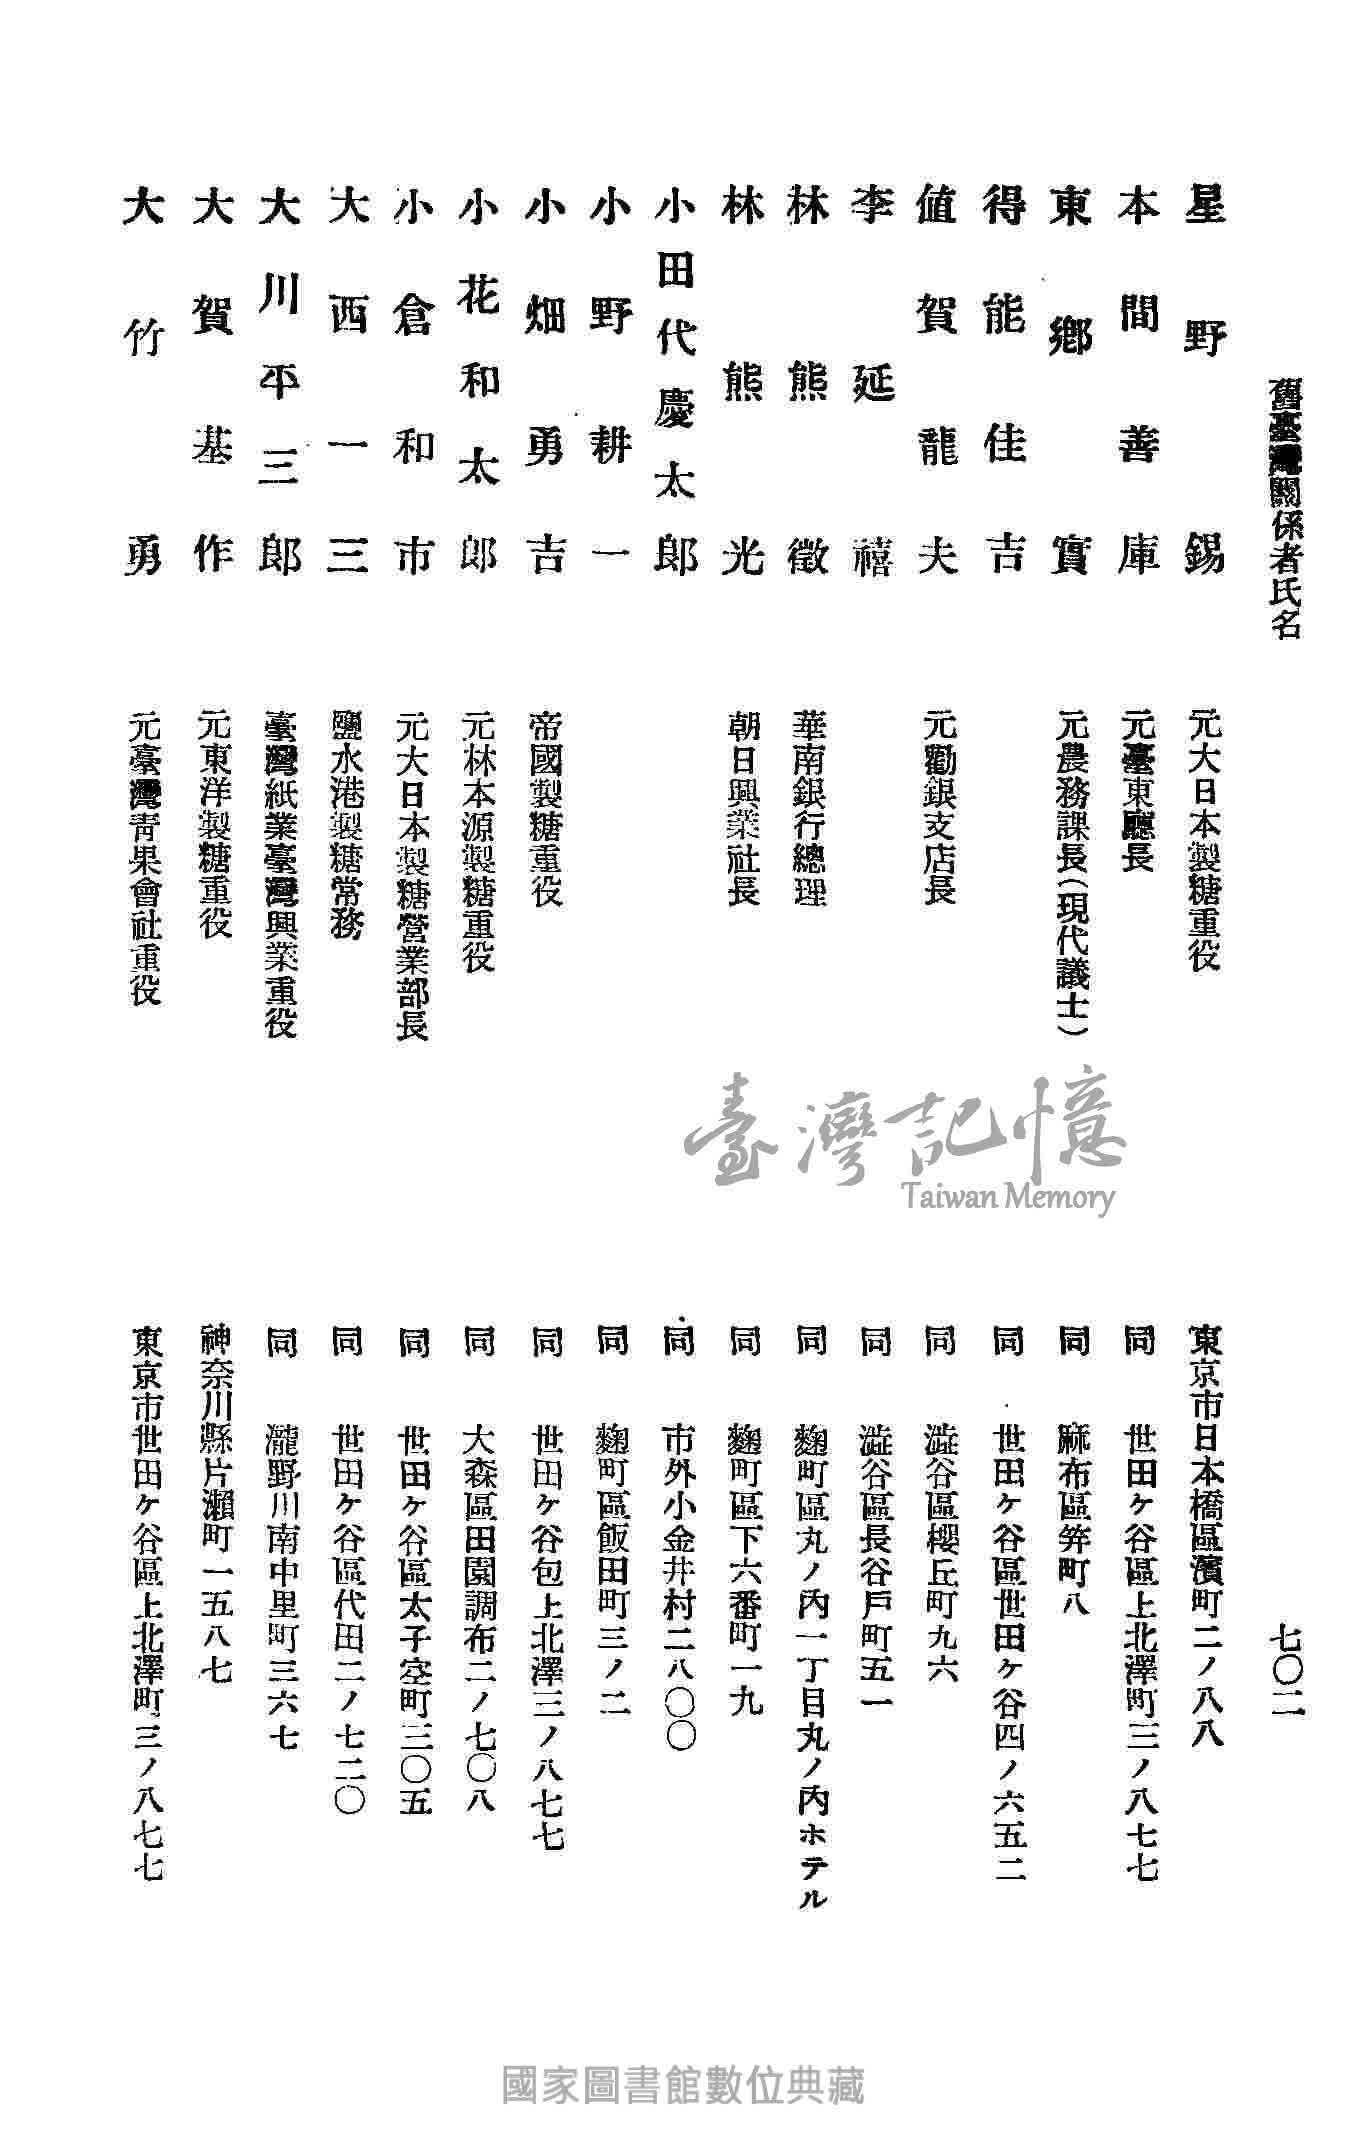 舊臺灣關係者氏名
七〇二
星野錫 元大日本製糖重役 東京市日本橋區濱町二ノ八八
本間善庫 元臺東廳長 同 世田ケ谷區上北澤町三ノ八七七
東鄕實 元農務課長(現代議士) 同 麻布區笄町八
得能佳吉 同 世田ケ谷區世田ケ谷四ノ六五二
値賀龍夫 元勸銀支店長 同 澁谷區櫻丘町九六
李延禧 同 澁谷區長谷戶町五一
林熊徵 華南銀行總理 同 麴町區丸ノ內一丁目丸ノ內ホテル
林熊光 朝日興業社長 同 麴町區下六番町一九
小田代慶太郎 同 市外小金井村二八〇〇
小野耕一 同 麴町區飯田町三ノ二
小畑勇吉 帝國製糖重役 同 世田ケ谷包上北澤三ノ八七七
小花和太郎 元林本源製糖重役 同 大森區田園調布二ノ七〇八
小倉和市 元大日本製糖營業部長 同 世田ケ谷區太子空町三〇五
大西一三 鹽水港製糖常務 同 世田ケ谷區代田二ノ七二〇
大川平三郎 臺灣紙業臺灣興業重役 同 瀧野川南中里町三六七
大賀基作 元東洋製糖重役 神奈川縣片瀨町一五八七
大竹勇 元臺灣靑果會社重役 東京市世田ケ谷區上北澤町三ノ八七七
臺灣記憶
Taiwan Memory
國家圖書館數位典藏